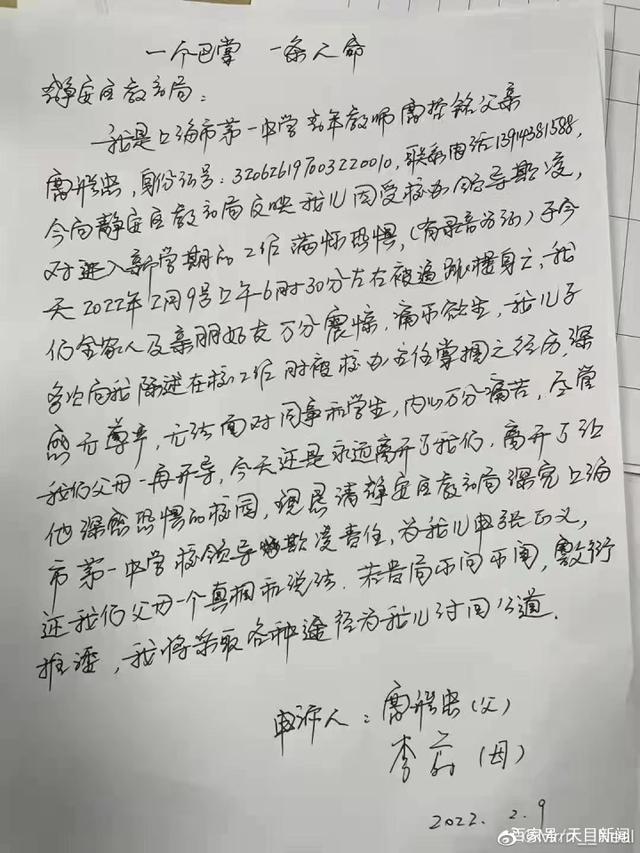 一个巴掌 一条人命
静安区教育局：
我是上海市第一中学青年教师 父亲
身份证号：320626197003220010，联系电话13914381588，
今向静安区教育局反映我儿因受校办领导欺凌，
对进入新学期的工作满怀恐惧，（有录音为证）于今
天2022年2月9号上午6时30分左右被逼跳楼身亡，我
们全家人及亲朋好友万分震惊，痛不欲生，我儿子
多次向我陈述在校工作时被校办主任掌掴之经历，深
感无尊严，无法面对同事和学生，内心万分痛苦，尽管
我们父母一再开导，今天还是永远离开了我们，离开了让
他深感恐惧的校园，现恳请静安区教育局深究上海
市第一中学校领导欺凌责任，为我儿申张正义，
还我们父母一个真相和说法．若贵局不问不闻，敷衍
推诿，我将采取各种途径为我儿讨回公道．
申诉人：（父）
李 （母）
2022．2．9
百家号/天目新闻